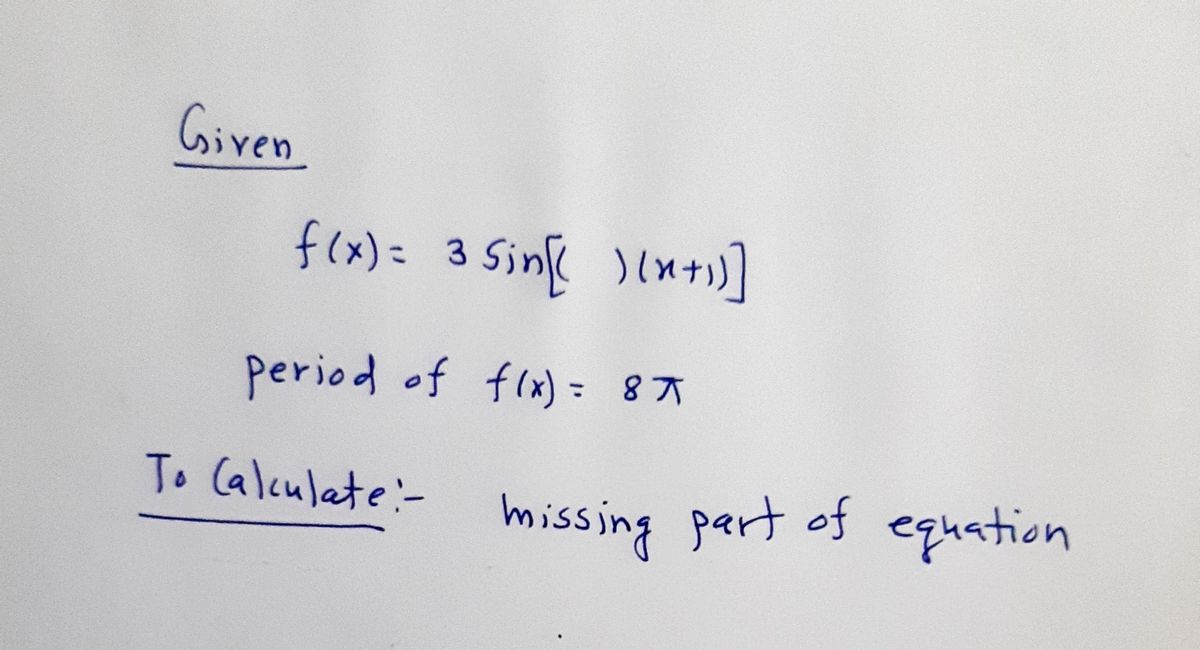 Given
f(x) = 3 Sin[( )(x+1)]
period of f(x) = 8π
To Calculate:- missing part of equation